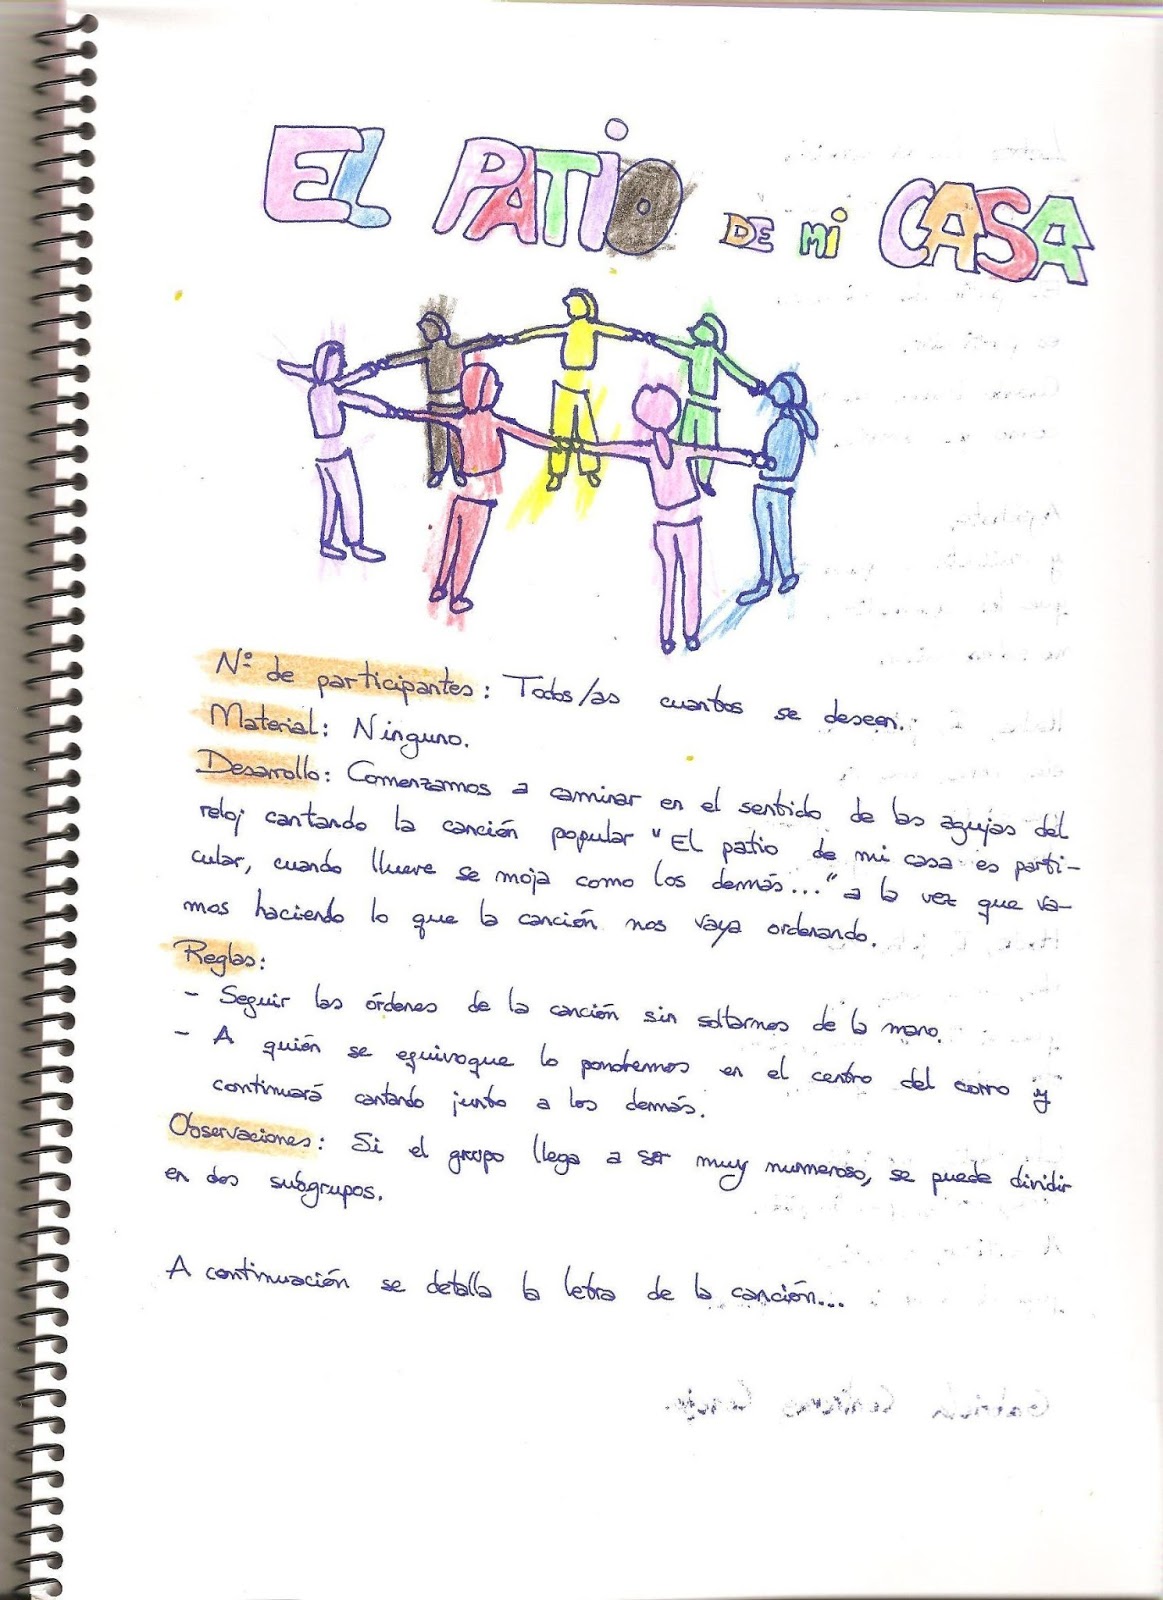 EL PATiO DE Mi CASA
Nº de participantes: Todos/as cuantos se deseen.
Material: Ninguno.
Desarrollo: Comenzamos a caminar en el sentido de las agujas del
reloj cantando la canción popular "El patio de mi casa es parti-
cular, cuando llueve se moja como los demás..." a la vez que va-
mos haciendo lo que la canción nos vaya ordenando.
Reglas:
- Seguir las órdenes de la canción sin soltarnos de la mano.
- A quién se equivoque lo pondremos en el centro del corro y
continuará cantando junto a los demás.
Observaciones: Si el grupo llega a ser muy numeroso, se puede dividir
en dos subgrupos.
A continuación se detalla la letra de la canción...